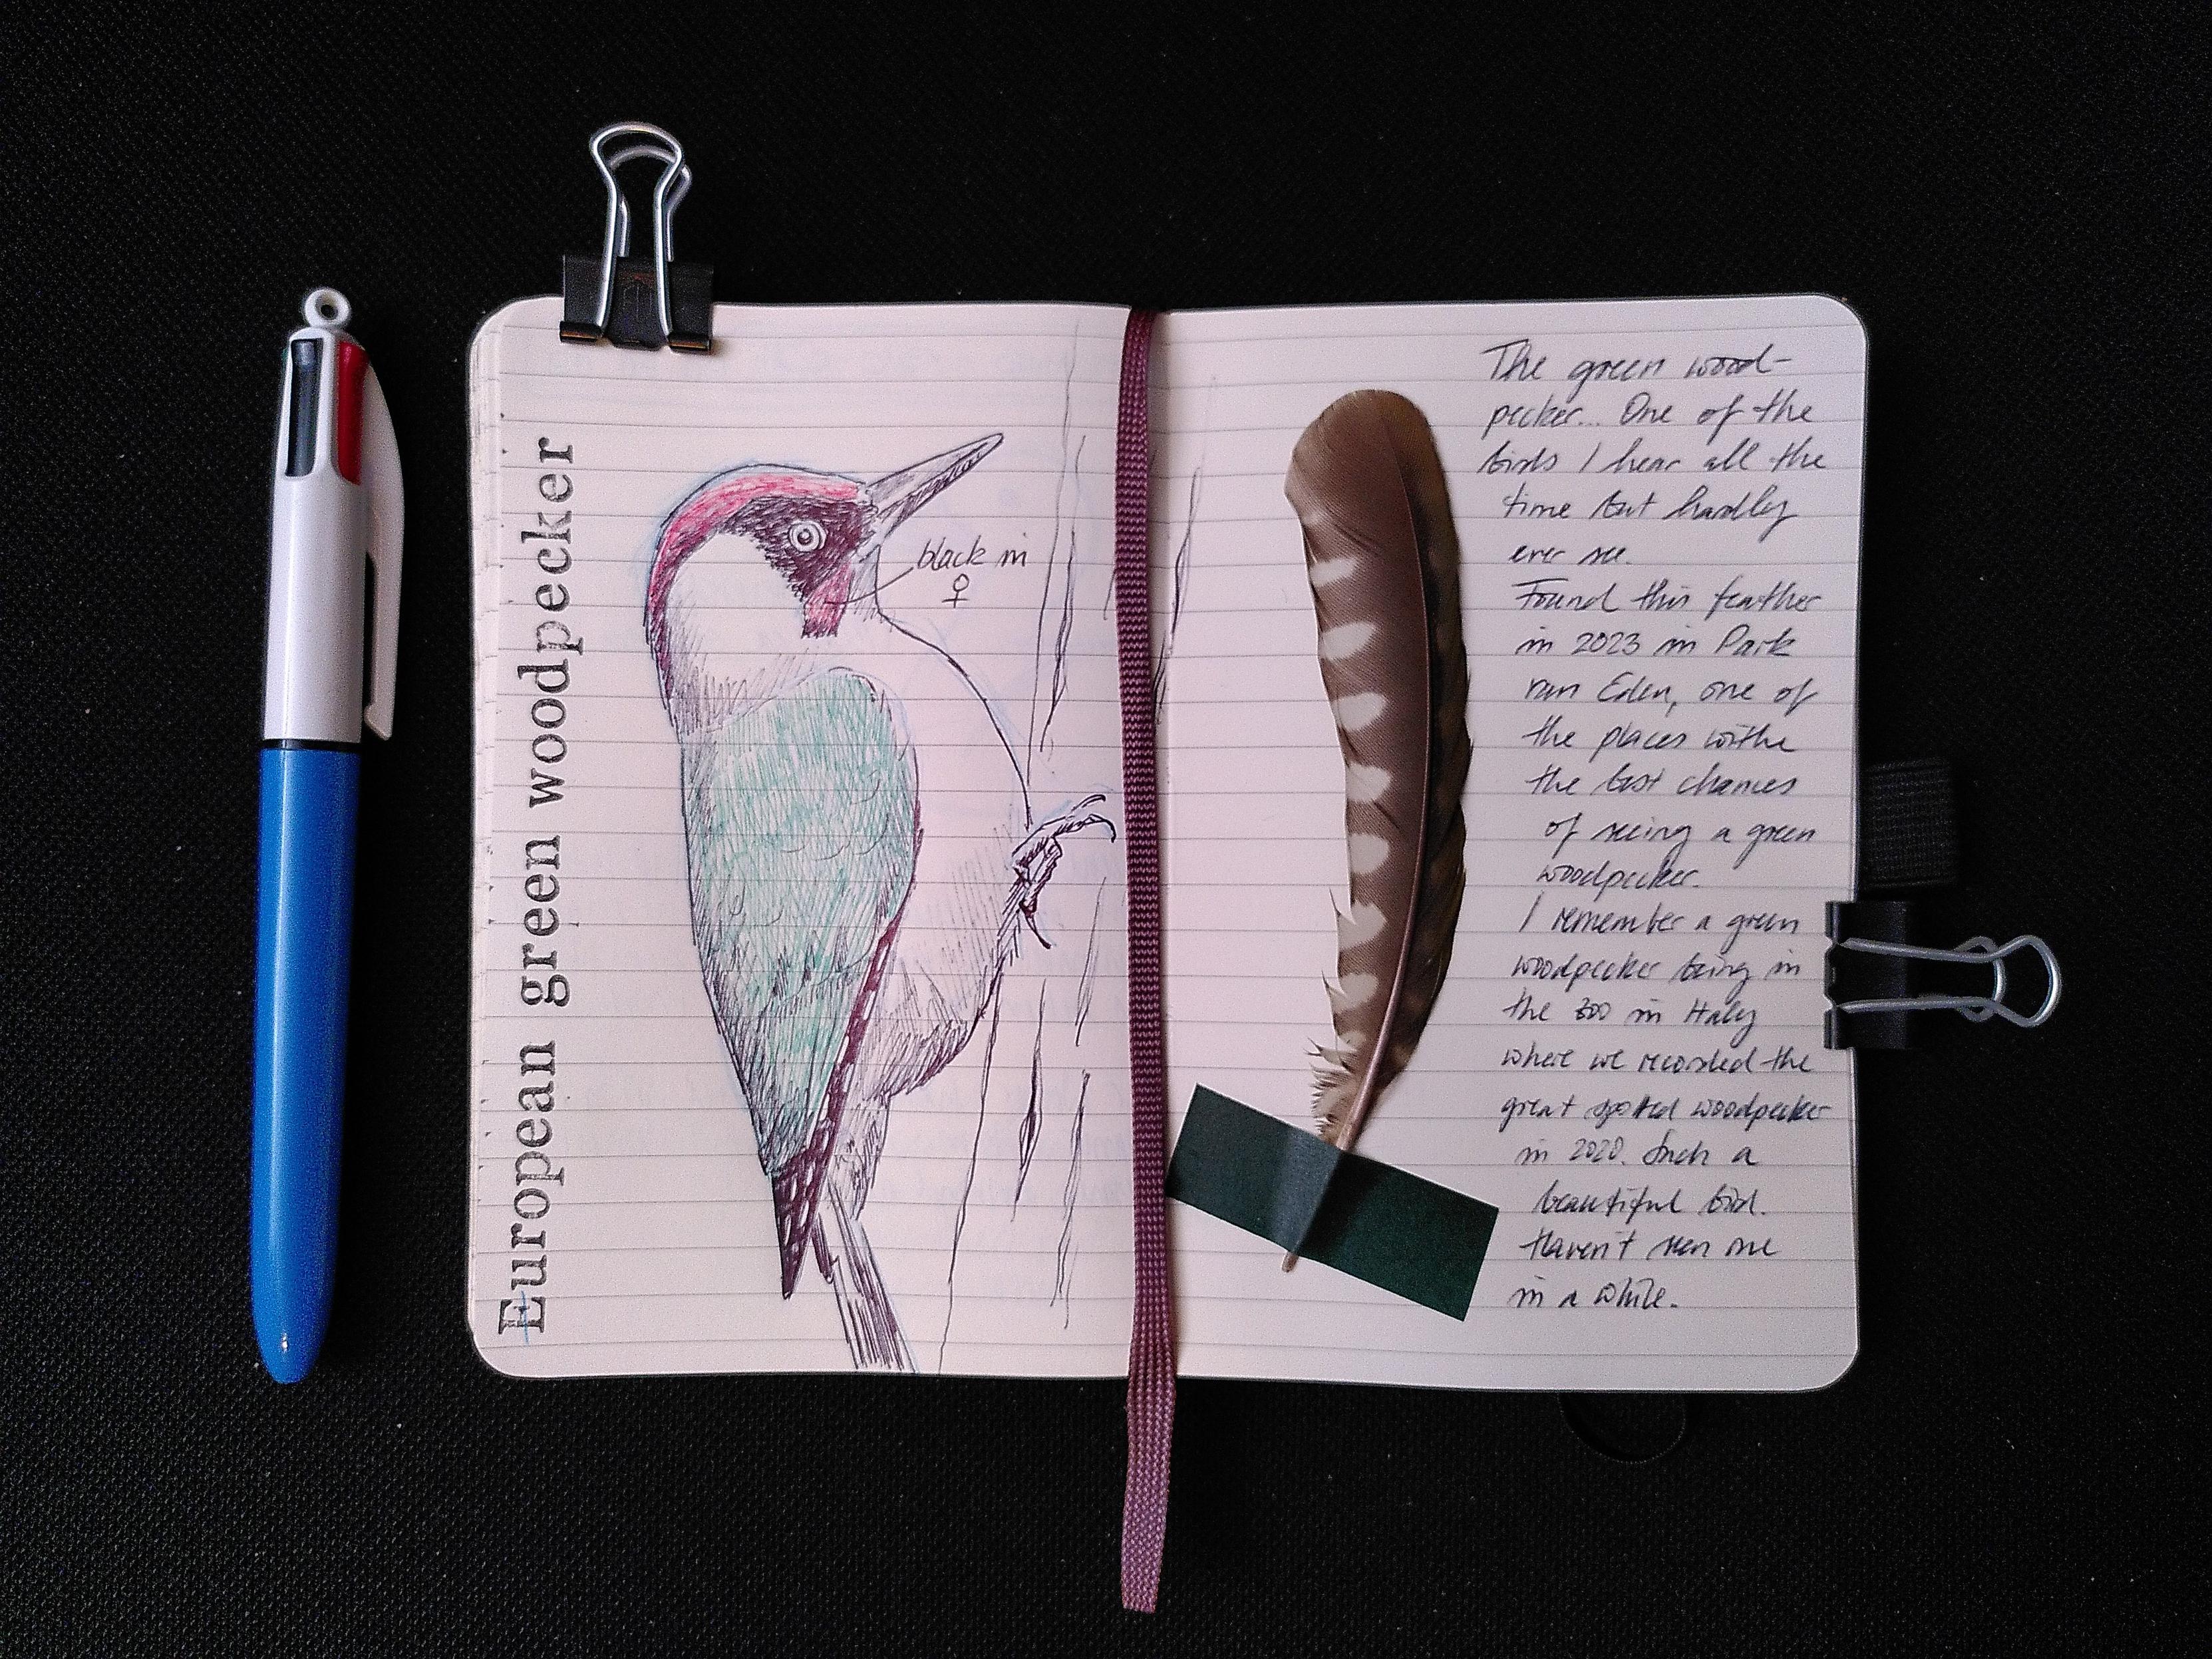 European green woodpecker
black in
♀
The green wood-
pecker... One of the
birds I hear all the
time but hardly
ever see.
Found this feather
in 2023 in Park
van Eden, one of
the places withe
the best chances
of seeing a green
woodpecker.
I remember a green
woodpecker being in
the zoo in Italy
where we recorded the
great spotted woodpecker
in 2020. Such a
beautiful bird.
Haven't seen one
in a while.